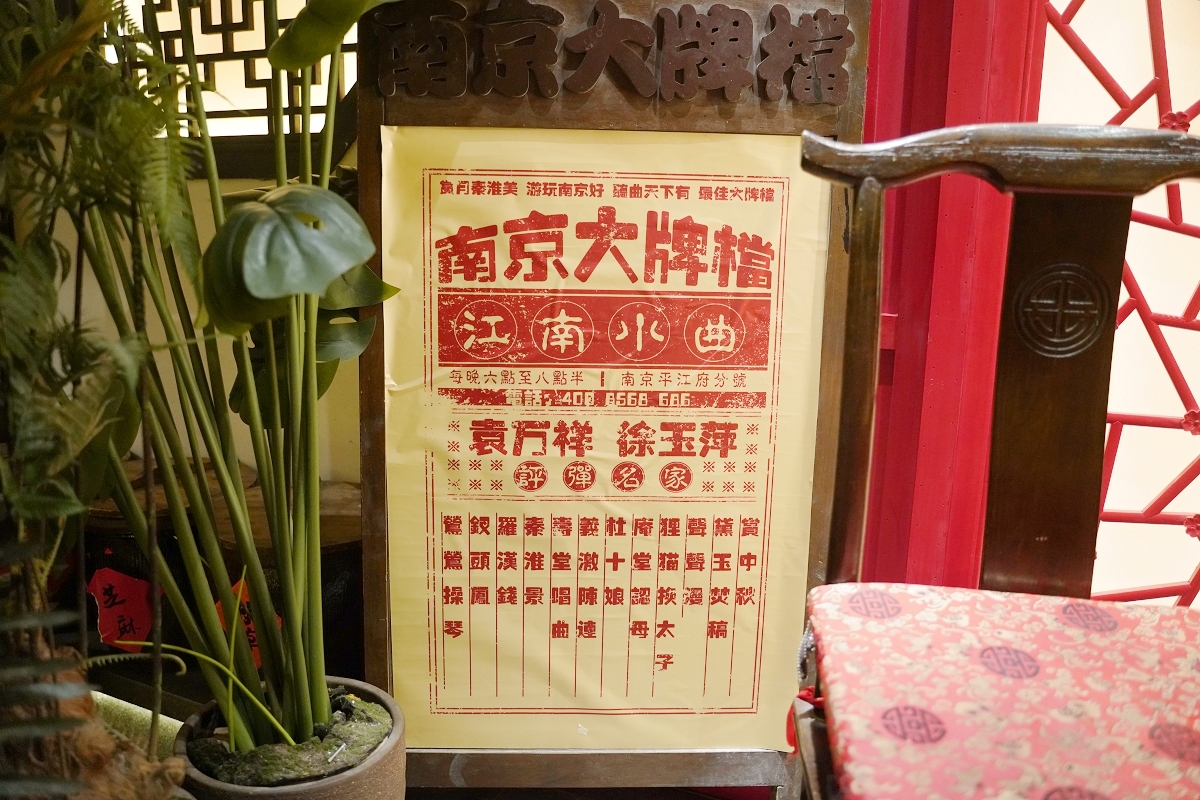 南京大牌檔
賞月秦淮美 游玩南京好 聽曲天下有 最佳大牌檔
南京大牌檔
江南小曲
每晚六點至八點半 | 南京平江府分號
電話:400 8568 686
袁万祥 徐玉萍
評彈名家
賞中秋
黛玉焚稿
聲聲漫
狸猫換太子
庵堂認母
杜十娘
義激陳連
壽堂唱曲
秦淮景
羅漢錢
釵頭鳳
鶯鶯操琴
芝麻